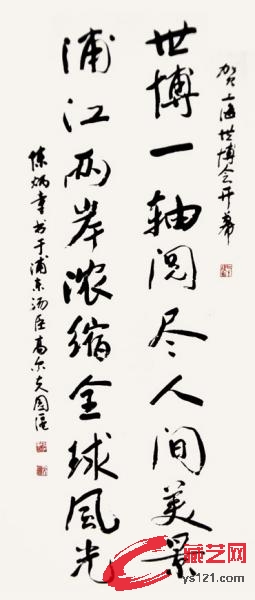 贺上海世博会开幕
世博一轴阅尽人间美景
浦江两岸浓缩全球风光
陈炳辛书于浦东汤臣高尔夫园区
藏艺网
ys121.com